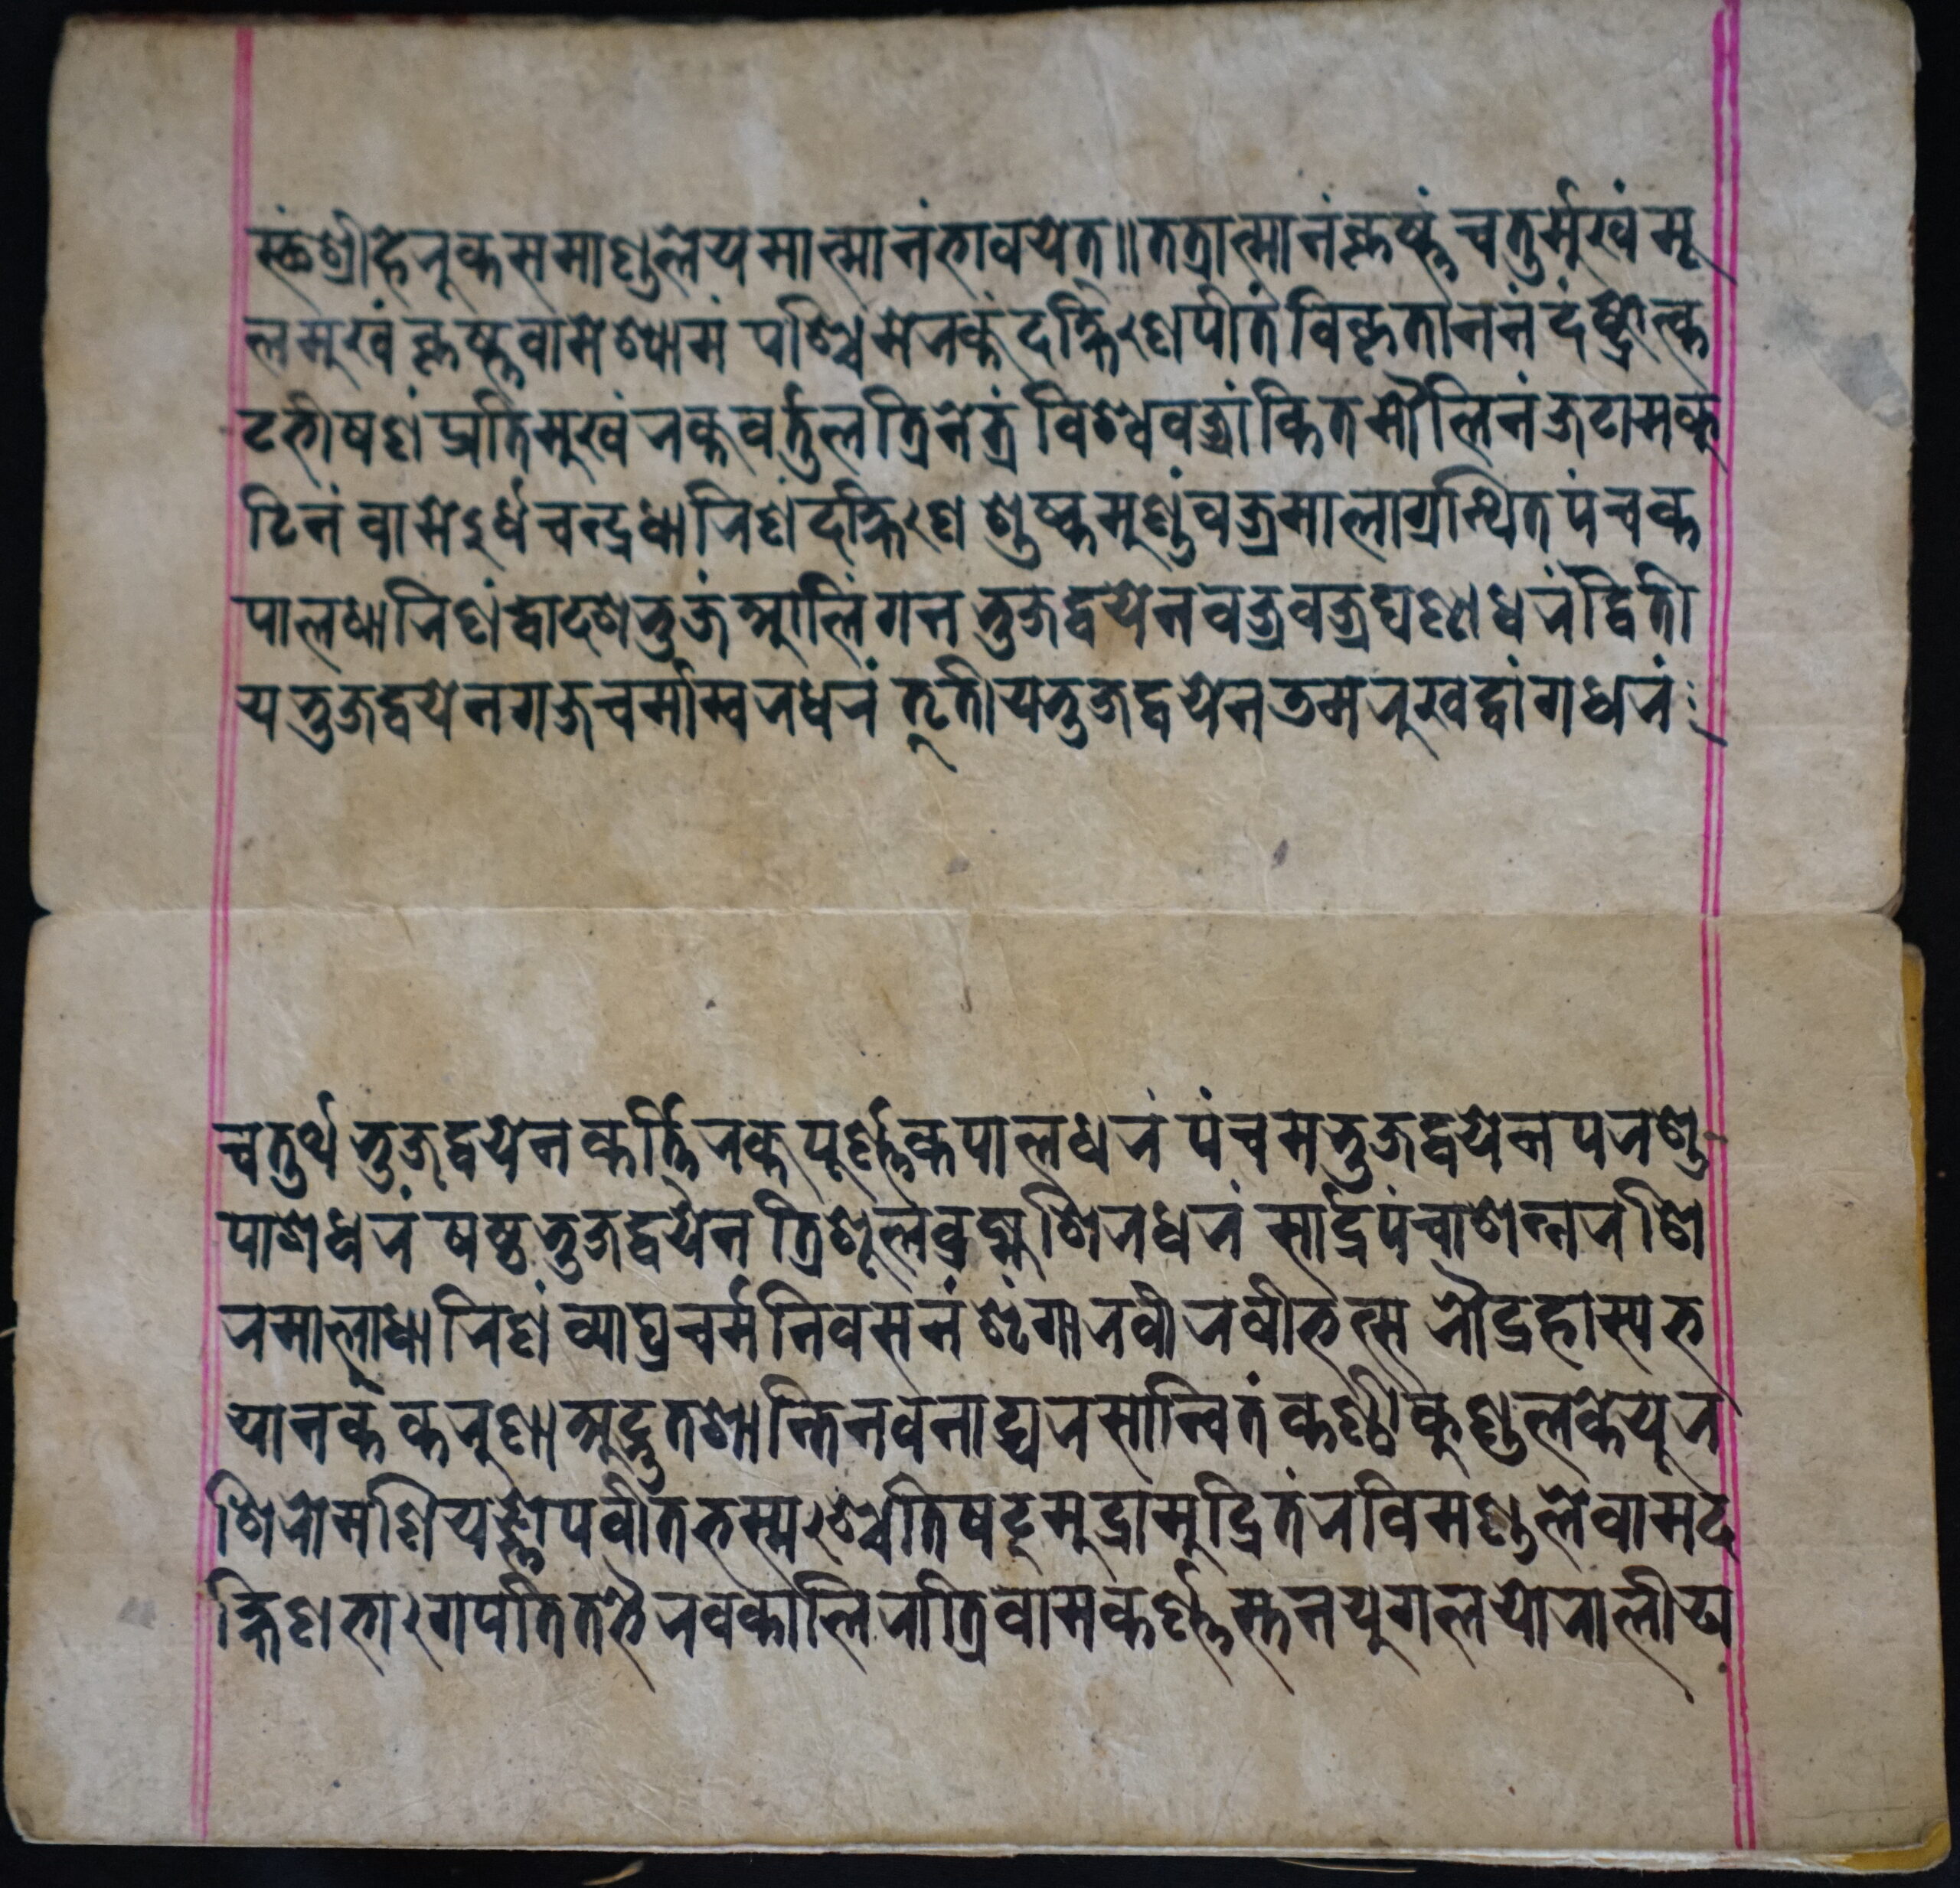 स्थंश्रीहेरूकसमाण्डलेयमात्मानंभावयेत्॥तत्रात्मानंकृष्णं चतुर्मुखंमू
लमुखं कृष्णवामेश्यामं पश्चिमेरक्तं दक्षिणेपीतं विकृताननं दंष्ट्रोत्क
टभीषणं प्रतिमुखं रक्तवर्तुलत्रिनेत्रं विश्ववज्रांकितमौलिनं जटामकू
टिनं वामेऽर्धचन्द्रधारिणंदक्षिणे शुष्कमुण्डंवज्रमालाग्रन्थितपंचक
पालधारिणं द्वादशभुजं आलिंगन भुजद्वयेनवज्रवज्रघण्टाधरं द्विती
यभुजद्वयेनगजचर्माम्बरधरं तृतीयभुजद्वयेनडमरुखट्वांगधरं
चतुर्थभुजद्वयेन कर्त्तिरक्तपूर्ण्णकपालधरं पंचमभुजद्वयेनपरशु
पाशधरं षष्ठभुजद्वयेन त्रिशूलब्रह्मशिरधरं सार्द्रपंचाशन्नरशि
रमालाधारिणं व्याघ्रचर्मनिवसनं शृंगारवीरवीभत्स रौद्रहास्यभ
यानकं करुणा अद्भुतशान्तिनवनाट्यरसान्वितं कण्ठीकुण्डलकेयूर
शिरोमणियज्ञोपवीतभस्मेश्चेतिषट्मुद्रामुद्रितंरविमण्डलेवामद
क्षिणभागेपतितभैरवकालिरात्रिवामकर्ण्णस्तनयुगलयोरालीय